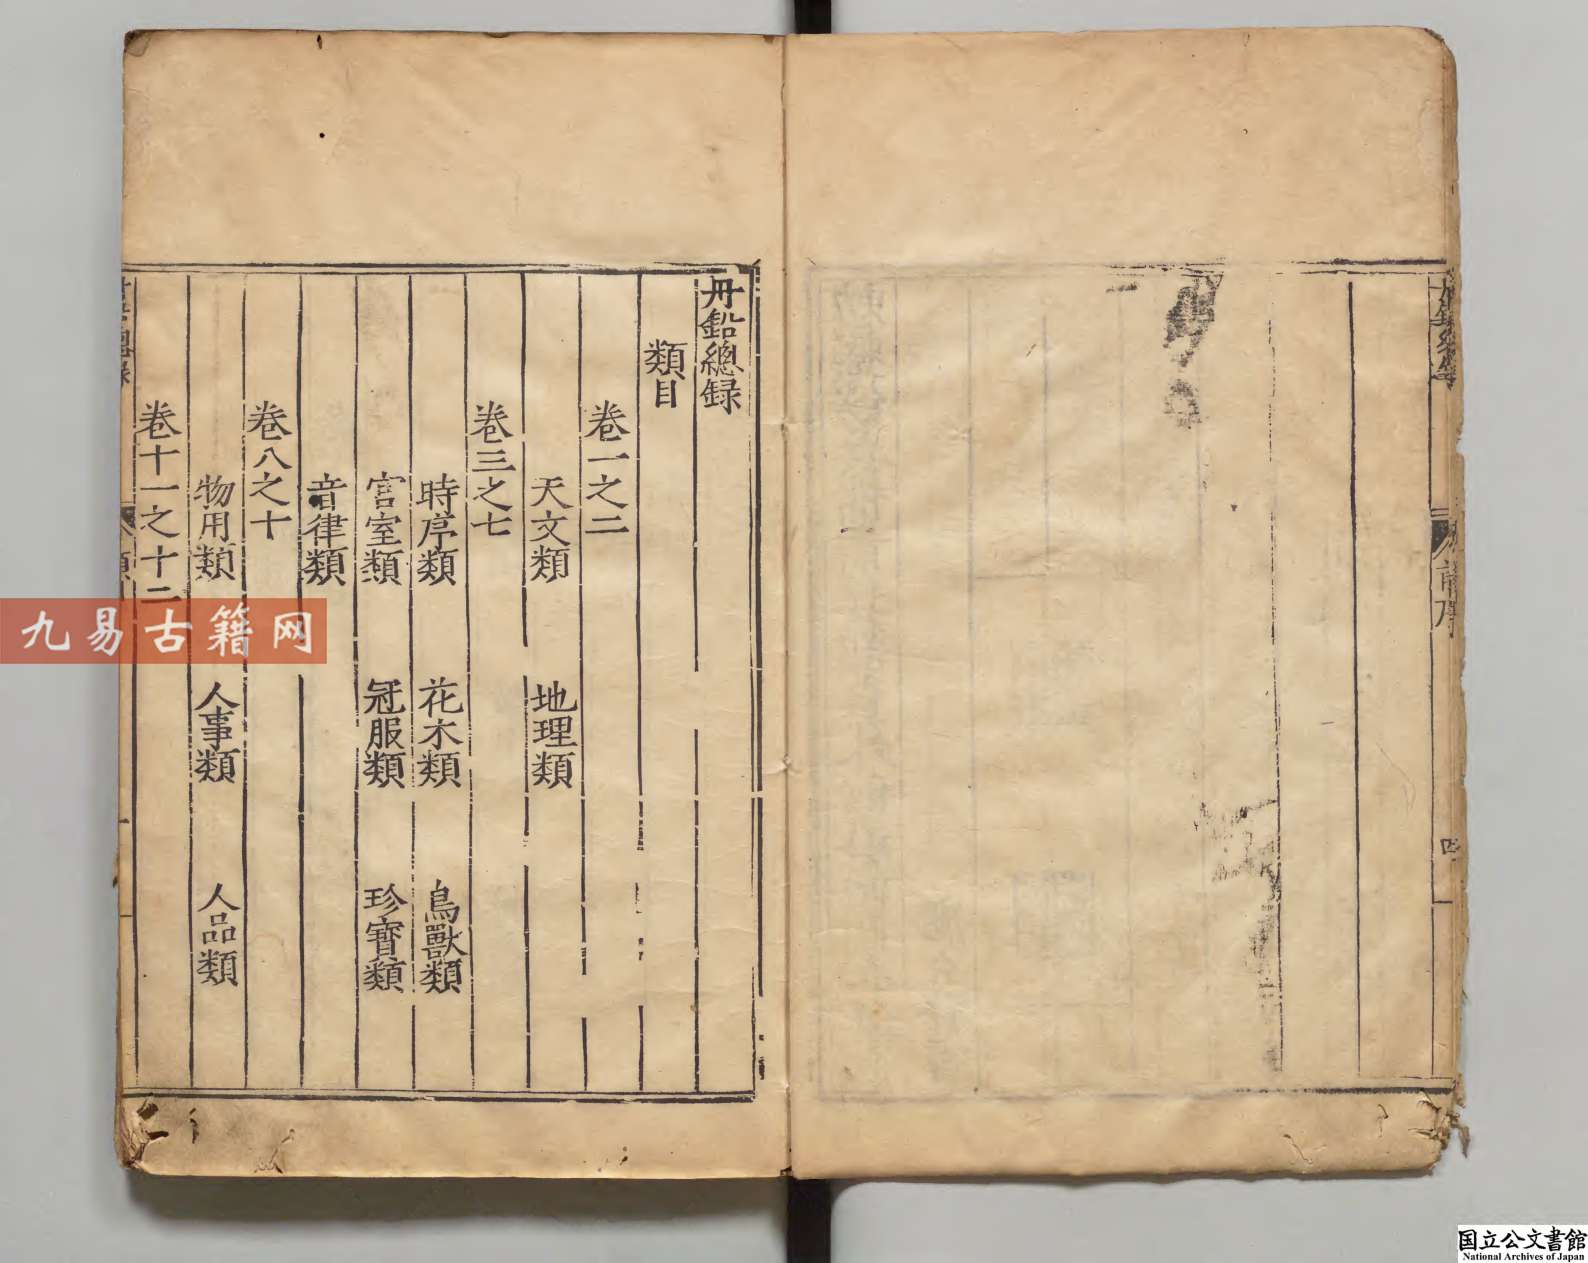 丹鉛總録
類目
卷一之二
天文類　地理類
卷三之七
時序類　花木類　鳥獸類
宫室類　冠服類　珍寶類
音律類
卷八之十
物用類　人事類　人品類
卷十一之十二
九易古籍网
国立公文書館
National Archives of Japan